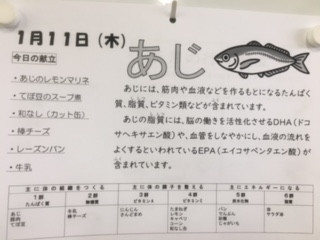 1月11日(木)
あじ
今日の献立
・あじのレモンマリネ
・てぼ豆のスープ煮
・和なし(カット缶)
・棒チーズ
・レーズンパン
・牛乳
あじには、筋肉や血液などを作るもとになるたんぱく
質、脂質、ビタミン類などが含まれています。
あじの脂質には、脳の働きを活性化させるDHA(ドコ
サヘキサエン酸)や、血管をしなやかにし、血液の流れを
よくするといわれているEPA(エイコサペンタエン酸)が
含まれています。
主に体の組織をつくる 主に体の調子を整える 主にエネルギーになる
1群 2群 3群 4群 5群 6群
たんぱく質 無機質 ビタミンA ビタミンC 炭水化物 脂質
あじ 牛乳 にんじん たまねぎ パン 油
豚肉 棒チーズ さんどまめ レモン てんぷん
てぼ豆 キャベツ 砂糖
コーン じゃがいも
和なし缶